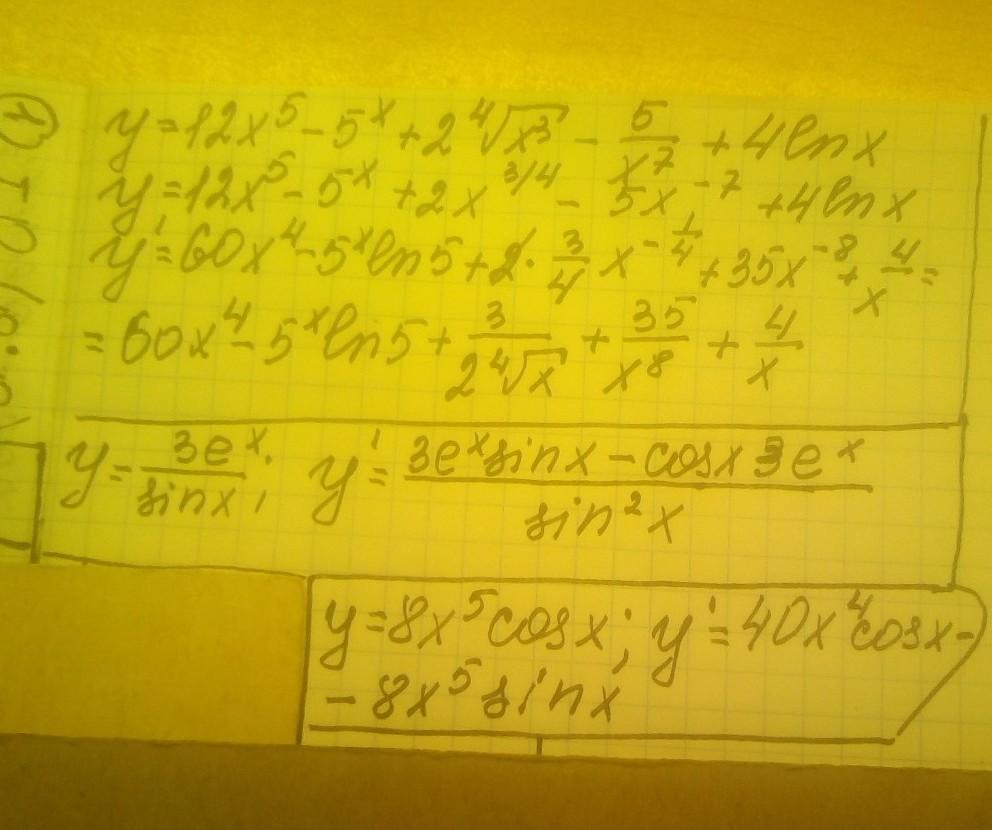 y=12x⁵-5ˣ+2∜x³ - 5/x⁷ +4lnx
y=12x⁵-5ˣ+2x^(3/4) - 5x⁻⁷ +4lnx
y'=60x⁴-5ˣln5+2·3/4 x^(-1/4) +35x⁻⁸ + 4/x =
= 60x⁴-5ˣln5+ 3/(2∜x) + 35/x⁸ + 4/x
y= 3eˣ/sinx; y'= (3eˣsinx - cosx3eˣ)/sin²x
y=8x⁵cosx; y'=40x⁴cosx-
-8x⁵sinx